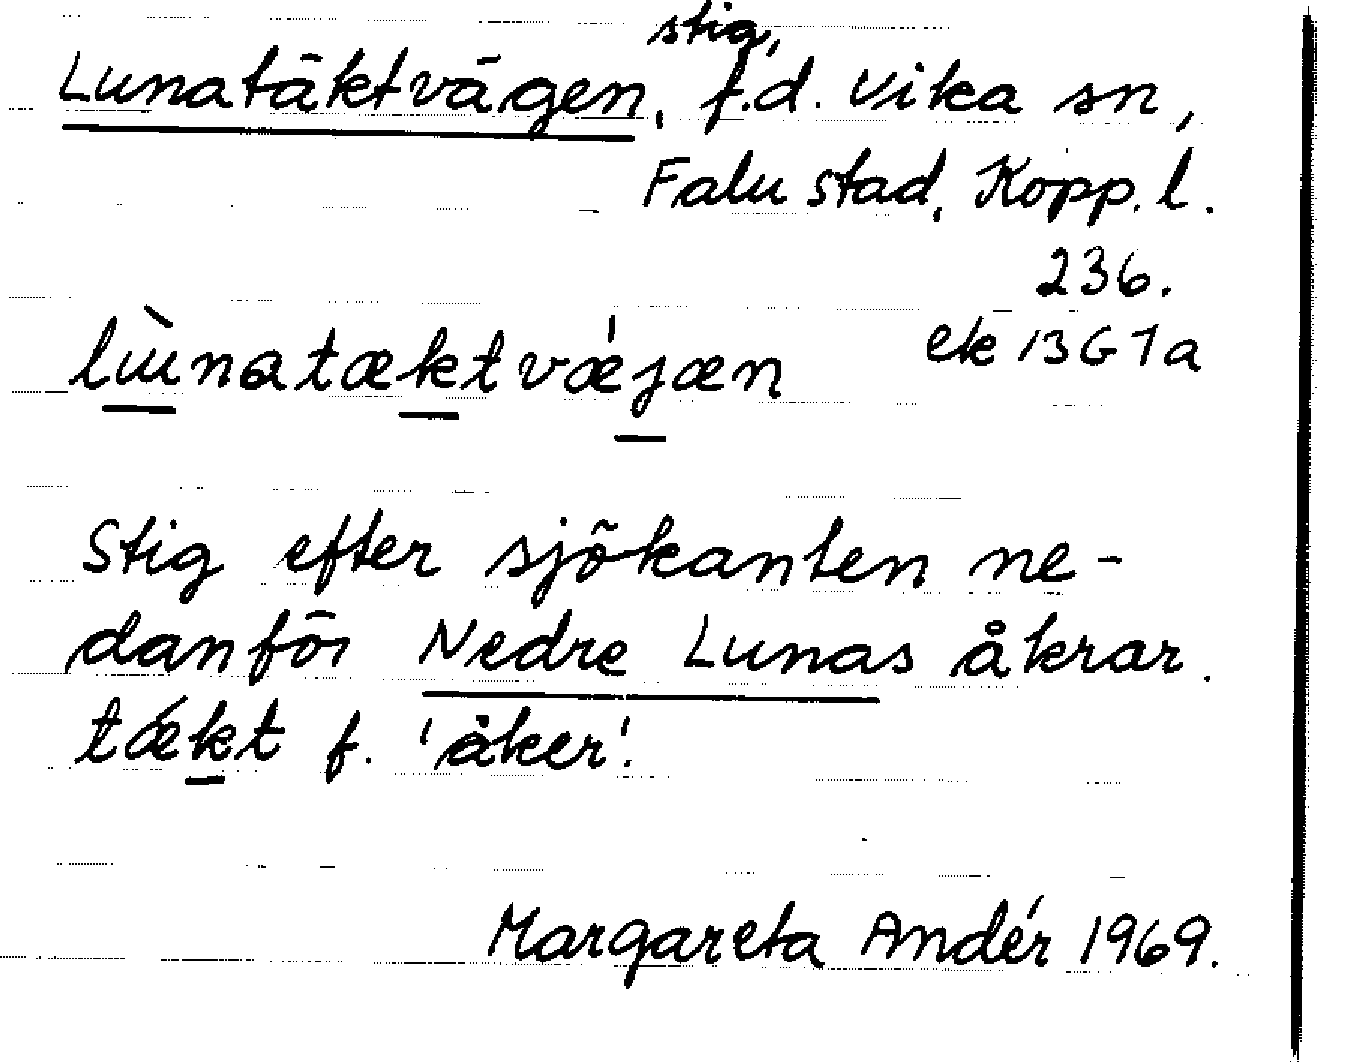 stig,
Lunatäktvägen, f.d. Vika sn,
Falu stad, Kopp. l.
236.
ek 13G1a
lɯ̀natæktvǽjæn
Stig efter sjökanten ne-
danför Nedre Lunas åkrar.
tǽkt f. 'åker'.
Margareta Andér 1969.